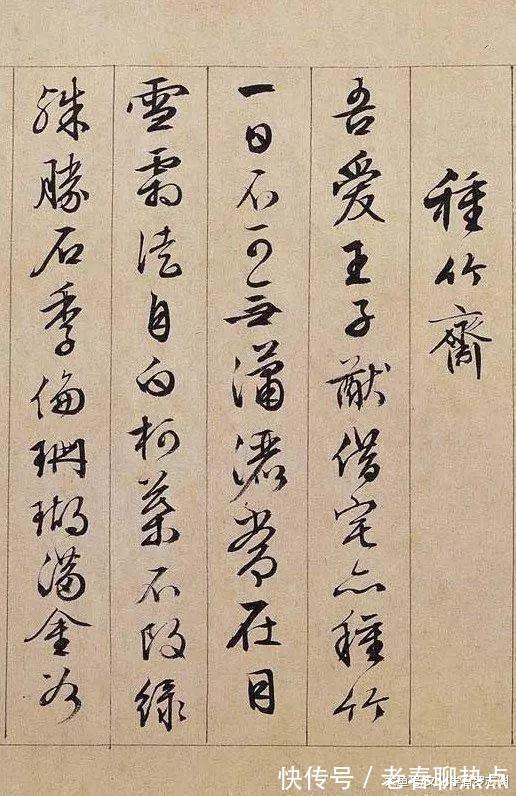 種竹齋
吾愛王子猷借宅亦種竹
一日不可無瀟灑常在目
雪霜徒自白柯葉不改綠
殊勝石季倫珊瑚滿金谷
快传号／老春聊热点